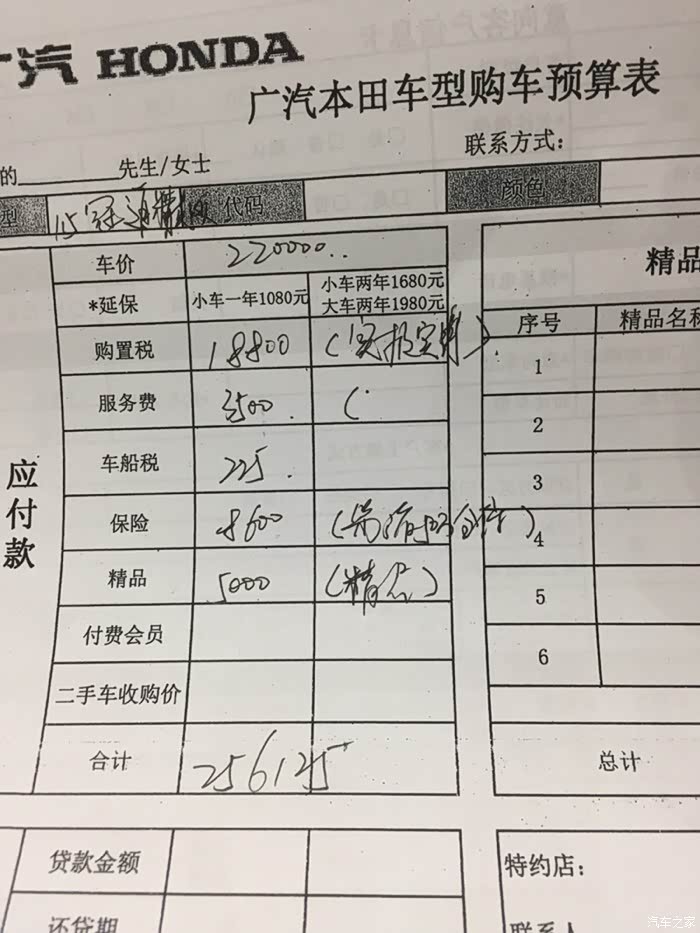 广汽 HONDA
广汽本田车型购车预算表
的 先生/女士 联系方式：
型 代码 颜色
车价 220000
*延保 小车一年1080元 小车两年1680元
大车两年1980元
购置税 18800
服务费 3500 (
车船税 225
保险 8600
精品 5000 (精品)
付费会员
二手车收购价
合计 256125
应付款
精品
序号 精品名称
1
2
3
4
5
6
总计
贷款金额
还贷期
特约店：
联系人
汽车之家